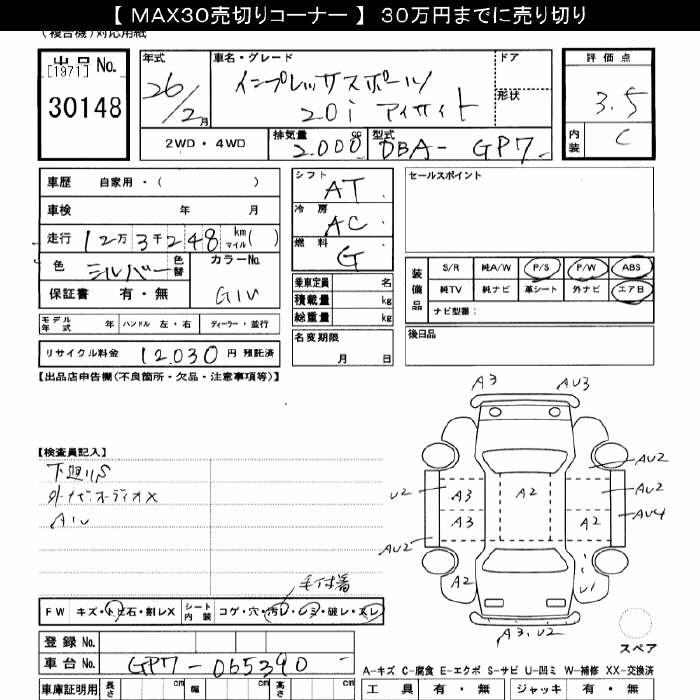 【 MAX30売切りコーナー 】 30万円までに売り切り
(複合機)対応用紙
出品No. [1971] 30148
年式 26/2月
車名・グレード インプレッサスポーツ 2.0i アイサイト
ドア 形状
評価点 3.5
内装 C
2WD・4WD 排気量 2.000cc 型式 DBA- GP7
車歴 自家用・( )
車検 年 月
走行 12万3千248 km マイル ( )
色 シルバー 色替 カラーNo. G1U
保証書 有・無
モデル年式 年 ハンドル 左・右 ディーラー・並行
リサイクル料金 12.030 円 預託済
シフト AT
冷房 AC
燃料 G
乗車定員 名
積載量 kg
総重量 kg
名変期限 月 日
セールスポイント
装備品 S/R 純A/W P/S P/W ABS
純TV 純ナビ 革シート 外ナビ エアB
ナビ型番:
後日品
【出品店申告欄(不良箇所・欠品・注意事項等)】
【検査員記入】
下廻りS
外ナビ.オーディオX
A1U
毛付着
FW キズ・トビ石・割レX シート内装 コゲ・穴・汚レ・シミ・破レ・スレ
登録No.
車台No. GP7-065390
車庫証明用 長さ cm 幅 cm 高さ cm
A3 AU3
AU2
U2 A3 A2 AU2
A3 A2 AU4
AU2
A2 U1
A3.U2
スペア
A-キズ C-腐食 E-エクボ S-サビ U-凹ミ W-補修 XX-交換済
工具 有・無 ジャッキ 有・無